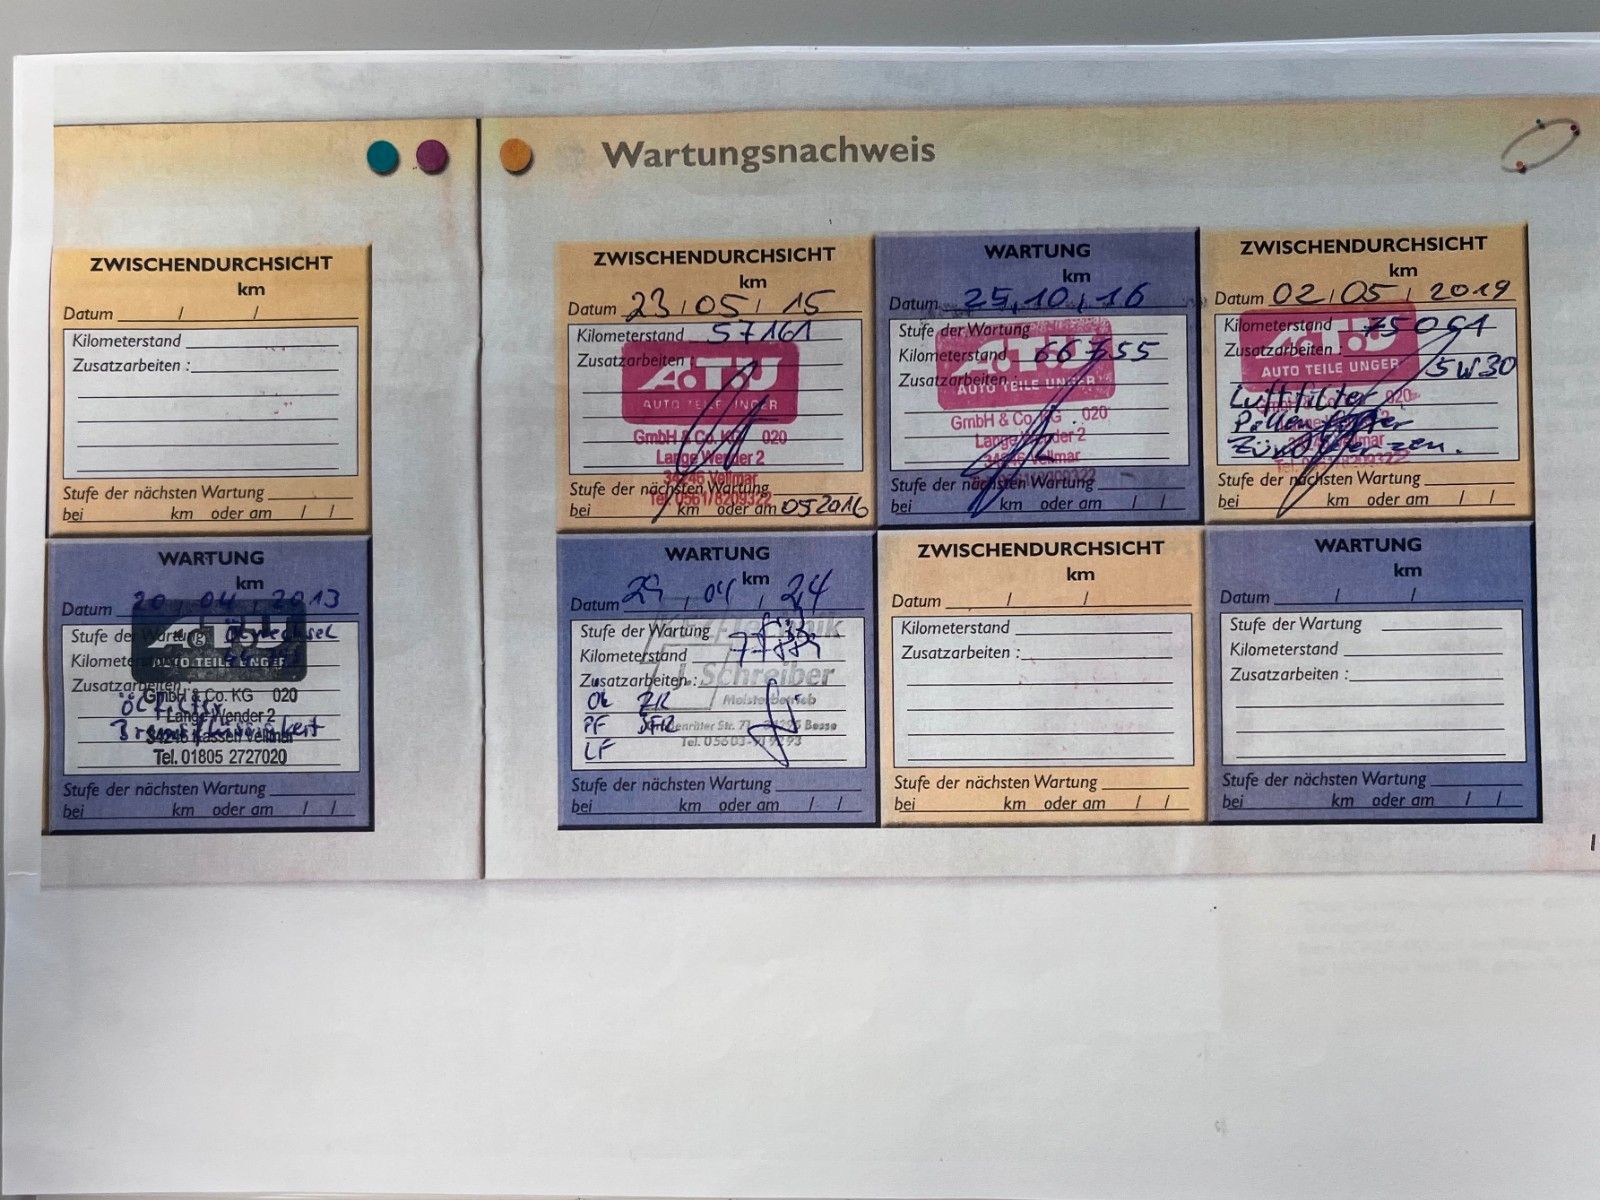 Wartungsnachweis
ZWISCHENDURCHSICHT
km
Datum / /
Kilometerstand
Zusatzarbeiten :
Stufe der nächsten Wartung
bei km oder am / /
WARTUNG
km
Datum 20 , 04 , 2013
Stufe der Wartung Ölwechsel
Kilometerstand
Zusatzarbeiten :
A.T.U
AUTO TEILE UNGER
GmbH & Co. KG 020
Lange Wender 2
Tel. 01805 2727020
Stufe der nächsten Wartung
bei km oder am / /
ZWISCHENDURCHSICHT
km
Datum 23 / 05 / 15
Kilometerstand 57161
Zusatzarbeiten :
A.T.U
AUTO TEILE UNGER
GmbH & Co. KG 020
Lange Wender 2
34246 Vellmar
Tel. 0561/8209322
Stufe der nächsten Wartung
bei km oder am 05 2016
WARTUNG
km
Datum 25,10,16
Stufe der Wartung
Kilometerstand 66755
Zusatzarbeiten :
A.T.U
AUTO TEILE UNGER
GmbH & Co. KG 020
Lange Wender 2
34246 Vellmar
Stufe der nächsten Wartung
bei km oder am / /
ZWISCHENDURCHSICHT
km
Datum 02 / 05 / 2019
Kilometerstand 75051
Zusatzarbeiten :
5W30
A.T.U
AUTO TEILE UNGER
Luftfilter
Pollenfilter
Zündkerzen.
Stufe der nächsten Wartung
bei km oder am / /
WARTUNG
km
Datum 29 , 04 , 24
Stufe der Wartung
Kilometerstand
Zusatzarbeiten :
Technik
Schreiber
Meisterbetrieb
ÖL ZR
PF
LF
Stufe der nächsten Wartung
bei km oder am / /
ZWISCHENDURCHSICHT
km
Datum / /
Kilometerstand
Zusatzarbeiten :
Stufe der nächsten Wartung
bei km oder am / /
WARTUNG
km
Datum / /
Stufe der Wartung
Kilometerstand
Zusatzarbeiten :
Stufe der nächsten Wartung
bei km oder am / /